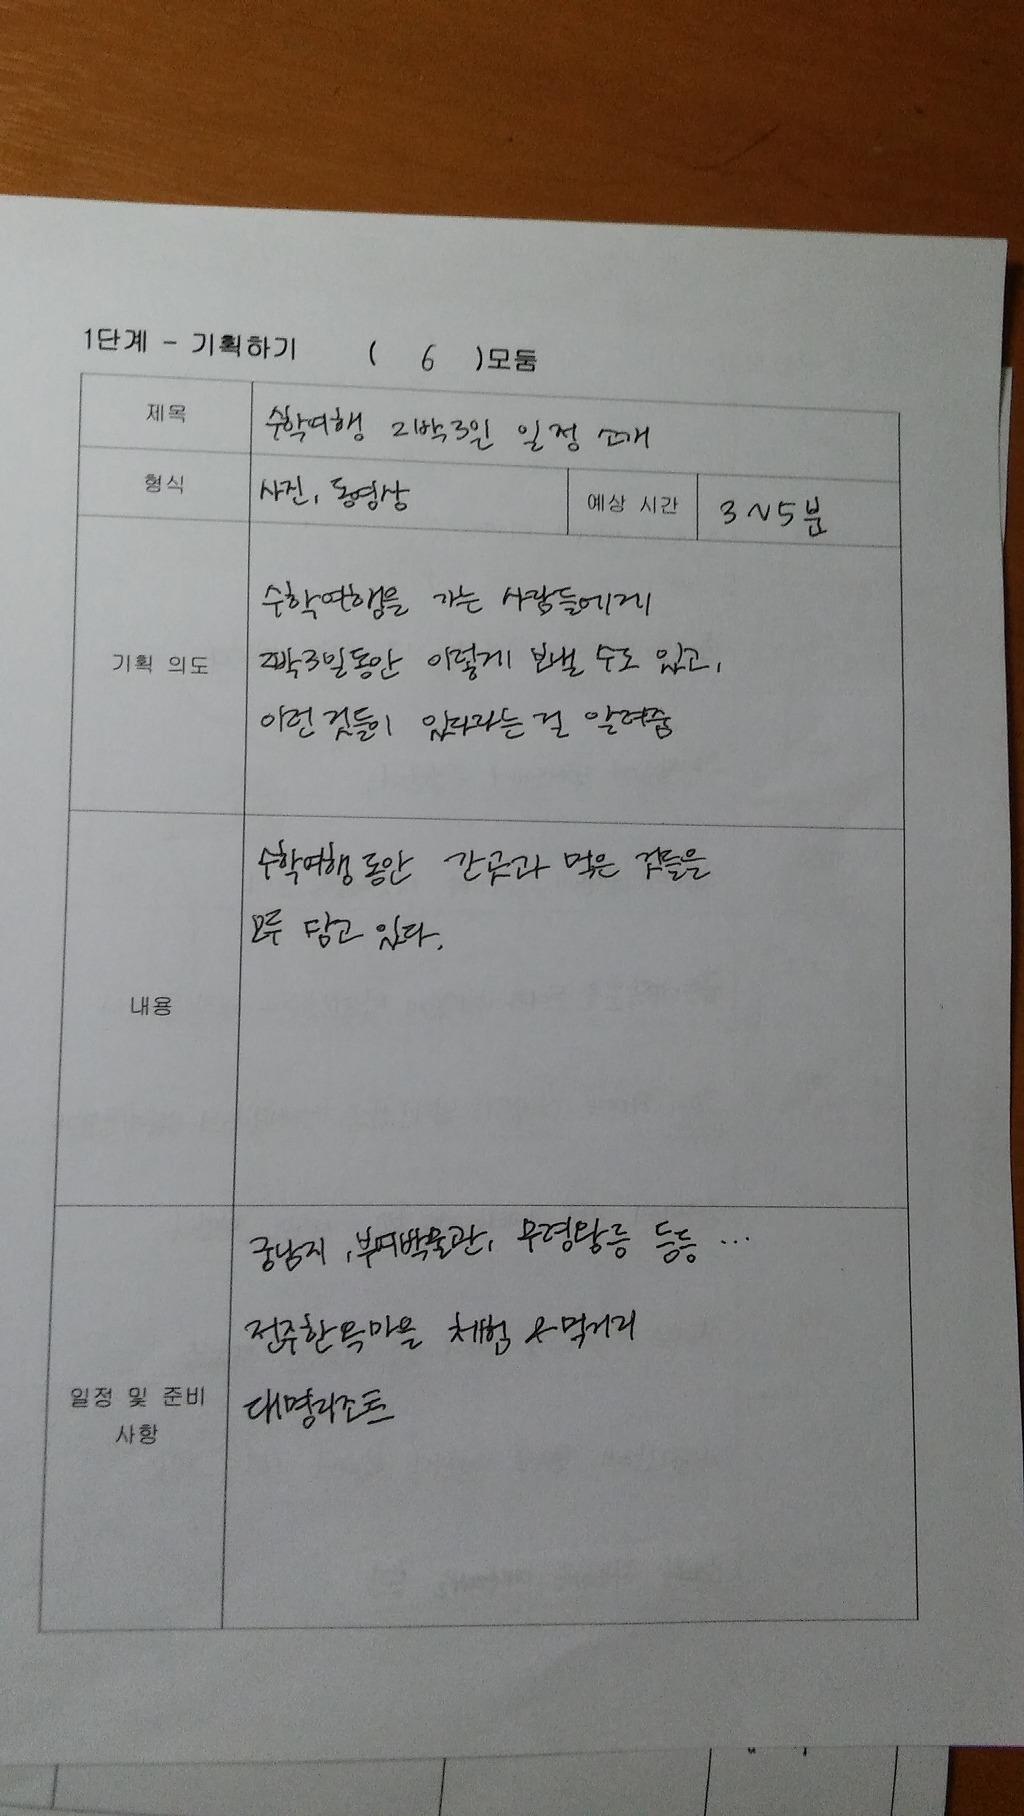 1단계 - 기획하기 ( 6 )모둠
제목 수학여행 2박3일 일정 소개
형식 사진, 동영상 예상 시간 3~5분
수학여행을 가는 사람들에게
기획 의도 2박3일동안 이렇게 보낼 수도 있고,
이런 것들이 있다라는 걸 알려줌
수학여행 동안 간곳과 먹은 것들을
모두 담고 있다.
내용
궁남지, 부여박물관, 무령왕릉 등등 ...
전주한옥마을 체험 & 먹거리
일정 및 준비 대명리조트
사항